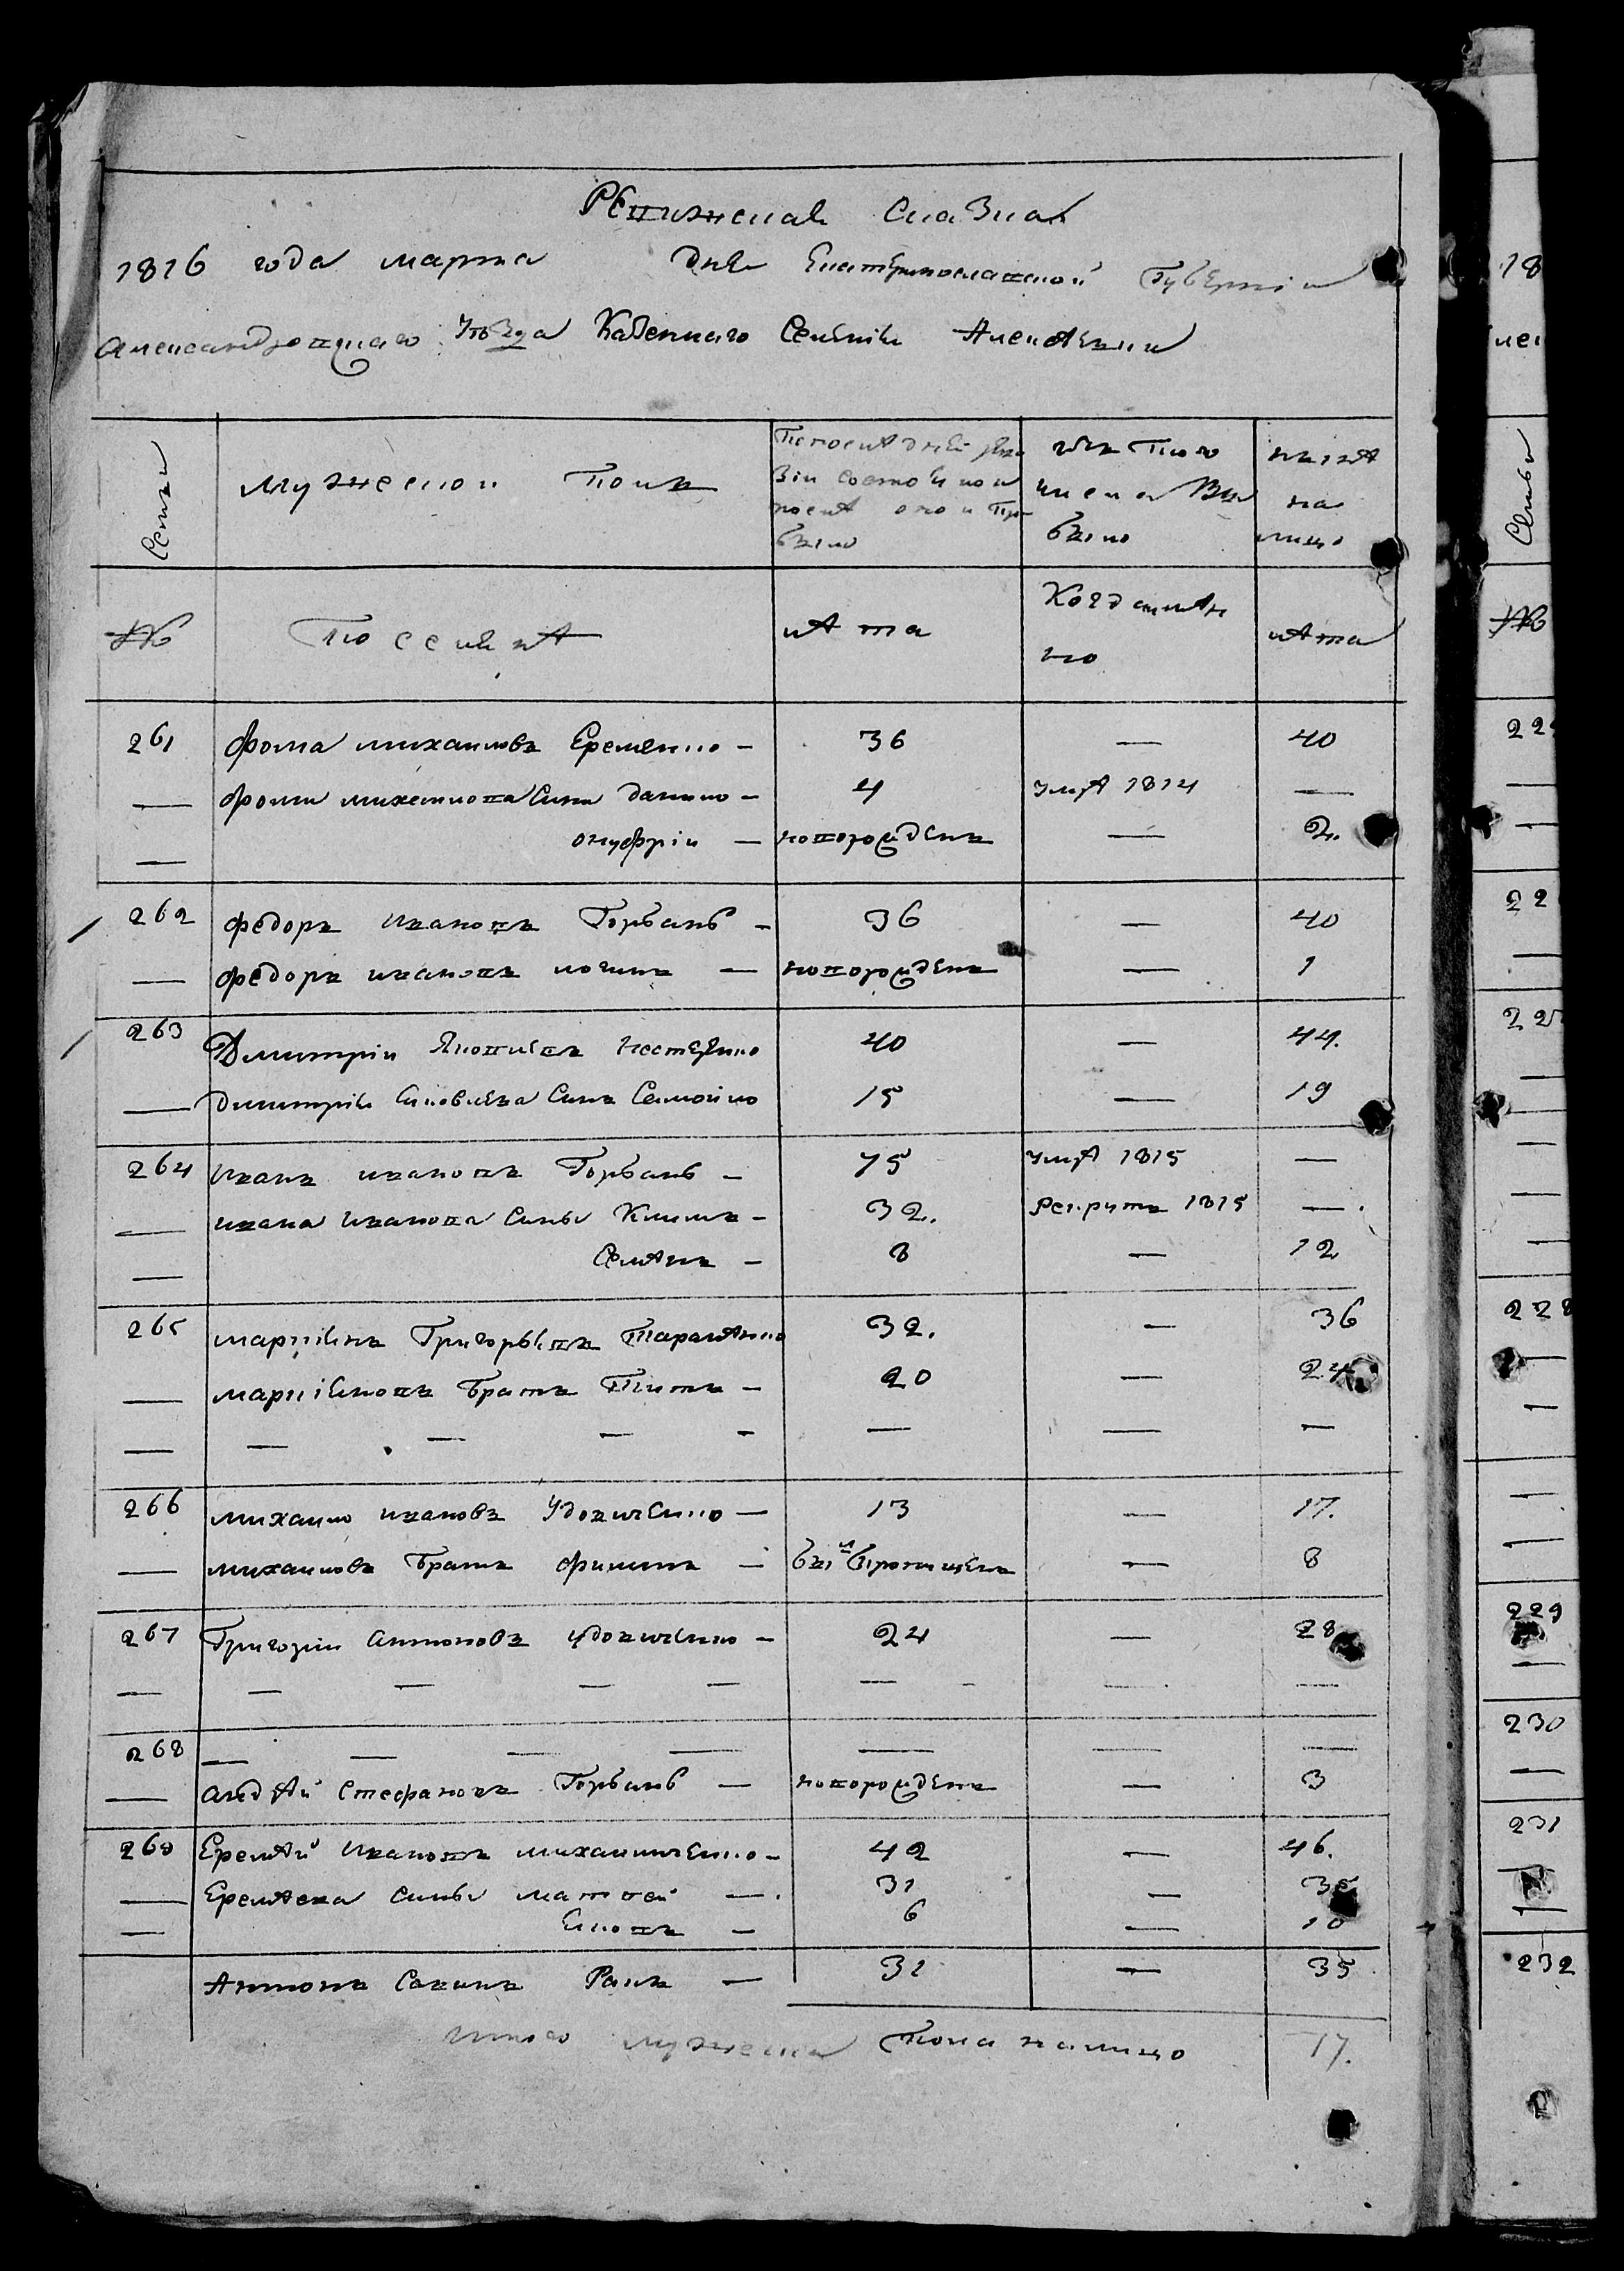 Ревижская сказка
1816 года марта дня Екатеринославской Губернiи
Александровскаго Уѣзда Казенного Селенiя Алексѣевки
Семьи
мужескои полъ
По последнѣй реви
зiи состояло и
послѣ оно и при
было
изъ того
числа Вы
было
нынѣ
на
лицо
№
По селянѣ
лѣта
Когда имян
но
лѣта
261 Фома михаиловъ Еременко - 36 — 40
— Фомы михаилова Сынъ данило - 4 умрѣ 1814 —
— онуфрiи — новорожденъ — 2.
262 Федоръ ивановъ Горбань - 36 — 40
— Федоръ ивановъ логинъ — новорожденъ — 1
263 Дмитрiи Яковлевъ Нестеренко 40 — 44.
— дмитрiя Яковлева Сынъ Самойло 15 — 19
264 иванъ ивановъ Горбань - 75 умрѣ 1815 —
— ивана иванова Сыны Климъ - 32. рекрутъ 1815 —.
— Семѣнъ - 8 — 12
265 марцiянъ Григорьевъ Тараненко 32. — 36
— марцiяновъ братъ Титъ - 20 — 24
— — — — - — — —
266 михаило ивановъ Удовиченко — 13 — 17.
— михаиловъ братъ филипъ — был пропищенъ — 8
267 Григорiи антоновъ удовиченко - 24 — 28
— — — — — — - — —
268 — — — — — — —
— андѣй Стефановъ Горбань — новорожденъ — 3
269 Еремѣй ивановъ михаиличенко - 42 — 46.
— Еремѣева Сыны матвеи —. 31 — 35
— Яковъ — 6 — 10
Антонъ Савинъ Ракъ — 31 — 35
итого мужеска пола налицо 17.
18
лек
Семьи
№
22
—
—
22
—
22
—
—
—
—
—
228
—
—
—
—
229
—
230
—
231
—
—
232